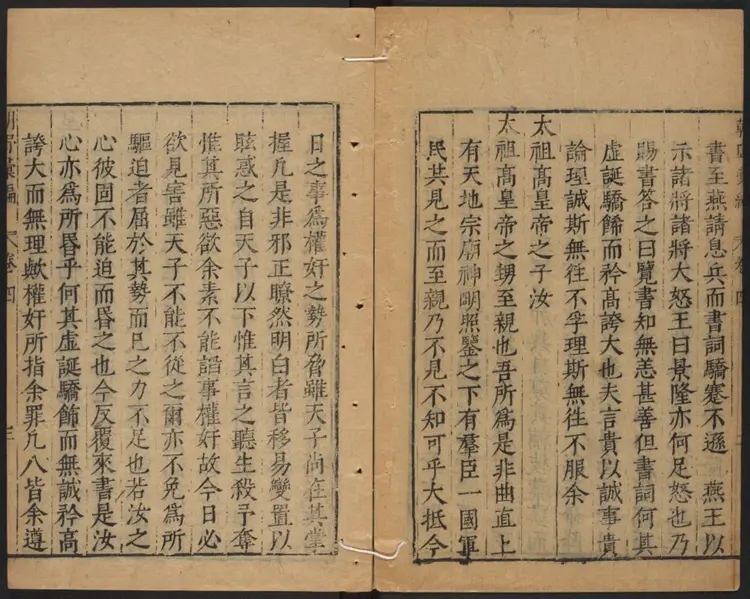 書至燕請息兵而書詞驕蹇不遜 燕王以
示諸將諸將大怒王曰景隆亦何足怒也乃
賜書答之曰覽書知無恙甚善但書詞何其
虛誕驕餙而矜高誇大也夫言貴以誠事貴
論理誠斯無徃不孚理斯無徃不服余
太祖高皇帝之子汝
太祖高皇帝之甥至親也吾所爲是非曲直上
有天地宗廟神明照鑒之下有羣臣一國軍
民共見之而至親乃不見不知可乎大抵今
日之事爲權奸之勢所脅雖天子尚在其掌
握凢是非邪正瞭然明白者皆移易變置以
眩惑之自天子以下惟其言之聽生殺予奪
惟其所惡欲余素不能謟事權奸故今日必
欲見害雖天子不能不從之爾亦不免爲所
驅迫者屈於其勢而已之力不足也若汝之
心彼固不能迫而昏之也今反覆來書是汝
心亦爲所昏乎何其虛誕驕餙而無誠矜高
誇大而無理歟權奸所指余罪凢八皆余遵
卷四